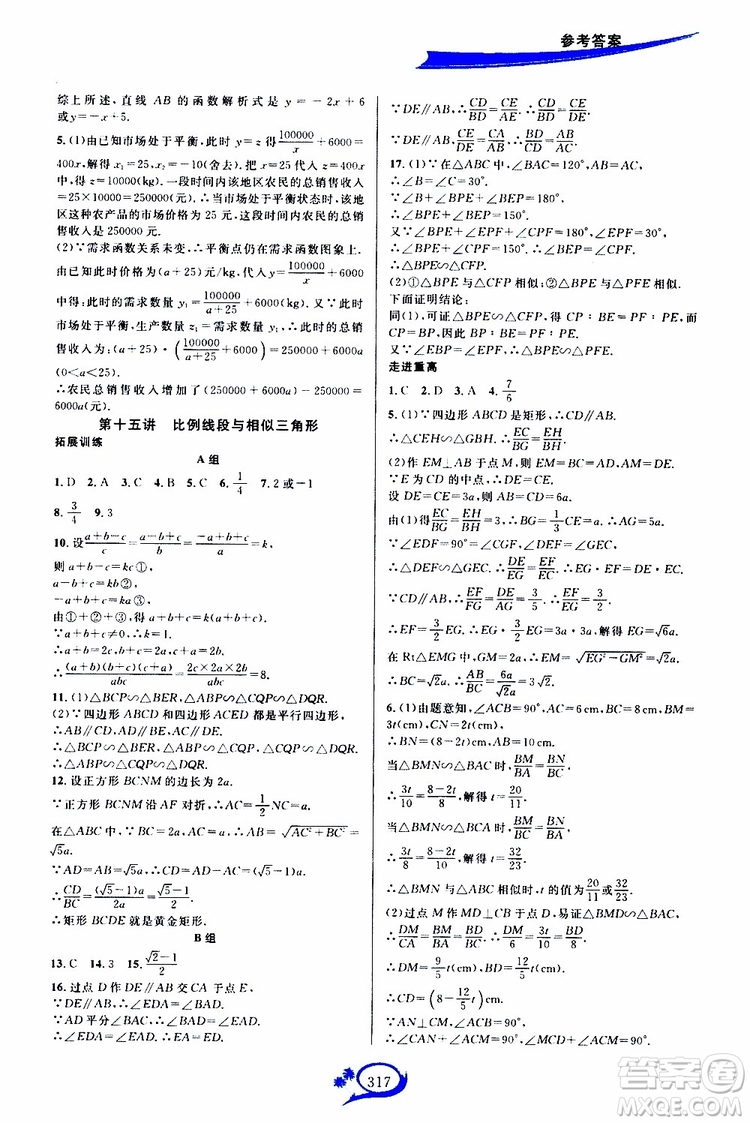 参考答案
综上所述,直线 AB 的函数解析式是 y=-2x+6
或y=-2x.
5.(1)由已知市场处于平衡,此时 y=100000/x+6000=
400x,解得 x₁=25,x₂=-10(舍去).把 x=25 代入
z=400x,得 z=10000(kg).一段时间内该地区农民的总销售收入
=25×10000=250000(元).∴当市场处于平衡状态时,该地
区这种农产品的市场价格为 25 元,这段时间内农民的总销
售收入是 250000 元.
(2)∵需求函数关系未变,∴平衡点仍在需求函数图象上.
由已知此时价格为(a+25)元/kg,代入 y=100000/x+6000
中得:此时的需求数量 y₁=100000/(a+25)+6000(kg).
∵此时市场处于平衡,生产数量 z₁=y₁,∴此时农民的总销
售收入为(a+25)·(100000/(a+25)+6000)=250000+6000a
(0<a<25).
∴农民总销售收入增加了 250000+6000a-250000=
6000a(元).
第十五讲 比例线段与相似三角形
拓展训练
A 组
1.D 2.A 3.C 4.B 5.C 6.1/4 7.2或-1
8.3/4 9.3
10.设(a+b-c)/c=(a-b+c)/b=(-a+b+c)/a=k,
则 a+b-c=kc①,
a-b+c=kb②,
-a+b+c=ka③,
由①+②+③得
a+b+c=k(a+b+c),
∵a+b+c≠0,∴k=1,∴a+b=2c,b+c=2a,c+a=2b.
∴(a+b)(b+c)(c+a)/abc=2c×2a×2b/abc=8.
11.(1)△BCP∽△BER,△ABP∽△CQP∽△DQR.
(2)∵四边形 ABCD 和四边形 ACED 都是平行四边形,
∴AB∥CD,AC∥DE.
∴△BCP∽△BER,△ABP∽△CQP,△CQP∽△DQR.
∴△ABP∽△CQP∽△DQR.
12.设正方形 BCNM 的边长为 2a.
∵正方形 BCNM 沿 AF 对折,∴AC=1/2NC=a.
在△ABC 中,∵BC=2a,AC=a,∴AB=√(AC²+BC²)=
√5a.
∵AD=AB=√5a,∴CD=AD-AC=√5a-a,
∴CD/BC=(√5-1)a/2a=(√5-1)/2.
∴矩形 BCDE 就是黄金矩形.
B 组
13.C 14.3 15.(√2-1)/2
16.过点 D 作 DE∥AB 交 CA 于点 E,
∵DE∥AB,∴∠EDA=∠BAD.
∵AD 平分∠BAC,∴∠EAD=∠BAD.
∴∠EAD=∠EDA.∴EA=ED.
∵DE∥AB,∴CD/BD=CE/AE,∴CD/BD=CE/DE.
∵DE∥AB,∴CE/DE=AC/AB,∴CD/BD=AC/AB,∴BD/CD=AB/AC.
17.(1)∵在△ABC 中,∠BAC=120°,AB=AC,
∴∠B=∠C=30°.
∵∠B+∠BPE+∠BEP=180°,
∴∠BPE+∠BEP=150°.
∵∠BPE+∠EPF+∠CPF=180°,∠EPF=30°,
∴∠BPE+∠CPF=150°,∴∠BEP=∠CPF,
∴△BPE∽△CFP.
(2)①△BPE 与△CFP 相似;②△BPE 与△PFE 相似.
下面证明结论:
同(1),可证△BPE∽△CFP,得 CP∶BE=PF∶PE,而
CP=BP,因此 BP∶BE=PF∶PE.
又∵∠EBP=∠EPF,∴△BPE∽△PFE.
走进重高
1.C 2.D 3.A 4.7/6
5.(1)∵四边形 ABCD 是矩形,∴CD∥AB,AD∥BC.
∴△CEH∽△GBH.∴EC/BG=EH/BH.
(2)作 EM⊥AB 于点 M,则有 EM=BC=AD,AM=DE.
∵E 为 CD 的中点,∴DE=CE.
设 DE=CE=3a,则 AB=CD=6a.
由(1)得EC/BG=EH/BH=1/3,∴BG=1/3CE=a,∴AG=5a.
∵∠EDF=90°=∠CGF,∠DEF=∠GEC,
∴△DEF∽△GEC.∴DE/EG=EF/EC,∴EG·EF=DE·EC.
∵CD∥AB,∴EF/FG=DE/AG=3/5,∴EF/EG=3/2.
∴EF=3/2EG.∴EG·3/2EG=3a·3a,∴EG=√6a.
在 Rt△EMG 中,GM=2a,∴EM=√(EG²-GM²)=√2a.
∴BC=√2a,∴CD/BC=6a/√2a=3√2.
6.(1)由题意知,∠ACB=90°,AC=6 cm,BC=8 cm,BM=
3t(cm),CN=2t(cm),∴AB=√(6²+8²)=10(cm),
∴BN=(8-2t)(cm).
当△BMN∽△BAC 时,BM/BA=BN/BC,
∴3t/10=(8-2t)/8,解得:t=20/11;
当△BMN∽△BCA 时,BM/BC=BN/BA,
∴3t/8=(8-2t)/10,解得:t=32/23.
∴△BMN 与△ABC 相似时,t 的值为20/11或32/23.
(2)过点 M 作 MD⊥CB 于点 D,易证△BMD∽△BAC.
∴DM/CA=BM/BA=BD/BC,∴DM/6=3t/10=BD/8.
∴DM=9/5t(cm),BD=12/5t(cm).
∴CD=(8-12/5t)(cm).
∵AN⊥CM,∠ACB=90°,
∴∠CAN+∠ACM=90°,∠MCD+∠ACM=90°.
317
答案圈
MXQE.COM